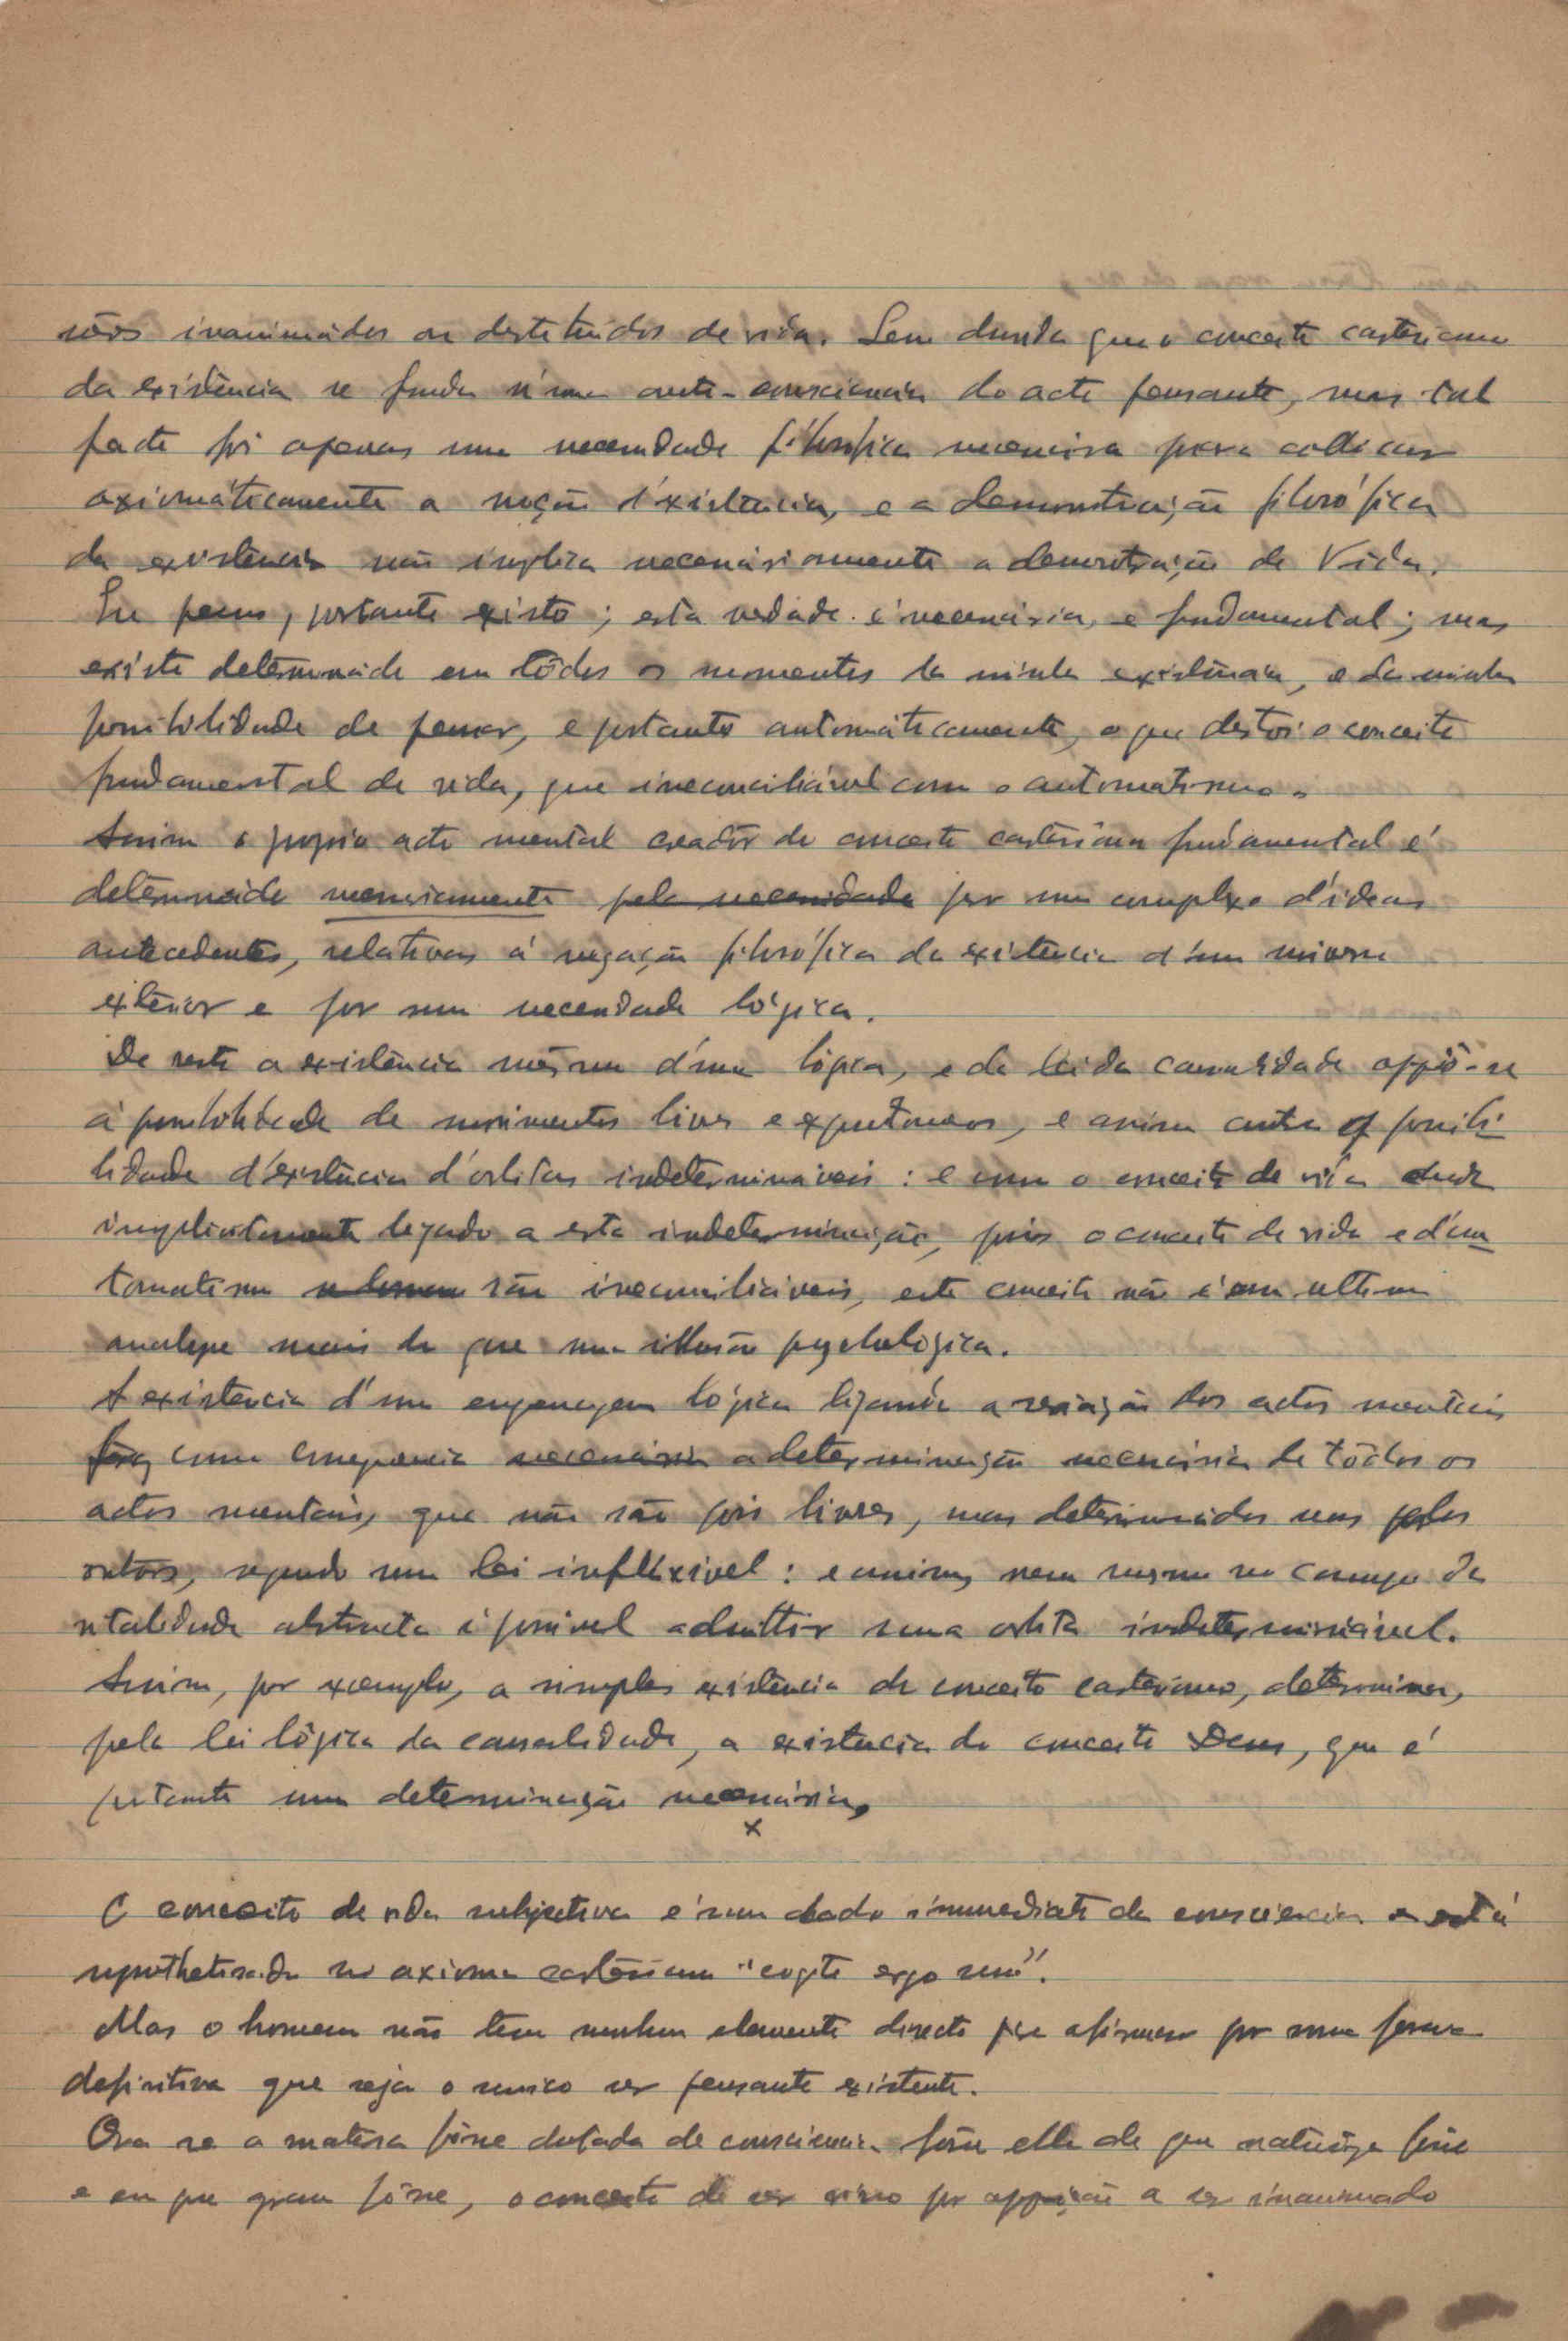 sêres inanimados ou destituidos de vida. Sem duvida que o conceito cartesiano
da existência se funda n'uma auto-consciencia do acto pensante, mas tal
facto foi apenas uma necessidade filosofica para collocar
axiomáticamente a noção d'existencia, e a demonstração filosófica
da existencia não implica necessáriamente a demonstração da Vida.
Eu penso, portanto existo; esta verdade é necessária, e fundamental; mas
existe determinada em todos os momentos da minha existência, e da minha
possibilidade de pensar, e portanto automáticamente, o que destroi o conceito
fundamental de vida, que irreconciliável com o automatismo.
Assim o proprio acto mental creador do conceito cartesiano fundamental é
determinado necessariamente pela necessidade por um complexo d'ideias
antecedentes, relativas á negação filosófica da existencia d'um universo
exterior e por uma necessidade lógica.
De resto a existência mesmo d'uma lógica, e da lei da causalidade oppõe-se
á possibilidade de movimentos livres e expontaneos, e assim contra a possibi-
lidade d'existencia d'orbitas indetermináveis: e como o conceito de vida anda
implicitamente ligado a esta indeterminação, pois o conceito de vida e d'au-
tomatismo são irreconciliáveis, este conceito não é em ultima
analyse mais do que uma illusão psychológica.
A existencia d'uma engrenagem lógica ligando a creação dos actos mentais
traz como consequencia necessaria a determinação necessária de todos os
actos mentais, que não são pois livres, mas determinados uns pelos
outros, segundo uma lei infléxivel: e assim, nem mesmo no campo da
vitalidade abstracta é possivel admittir uma orbita indeterminável.
Assim, por exemplo, a simples existência do conceito cartesiano, determina,
pela lei lógica da causalidade, a existencia do conceito Deus, que é
portanto uma determinação necessária.
x
O conceito de vida subjectiva é um dado immediato da consciencia e está
synthetisado no axioma cartesiano "cogito ergo sum".
Mas o homem não tem nenhum elemento directo para afirmar por uma forma
definitiva que seja o unico ser pensante existente.
Ora se a materia fôsse dotada de consciencia fôsse ella de que natureza fôsse
e em que grau fôsse, o conceito de ser vivo por opposição a ser inanimado